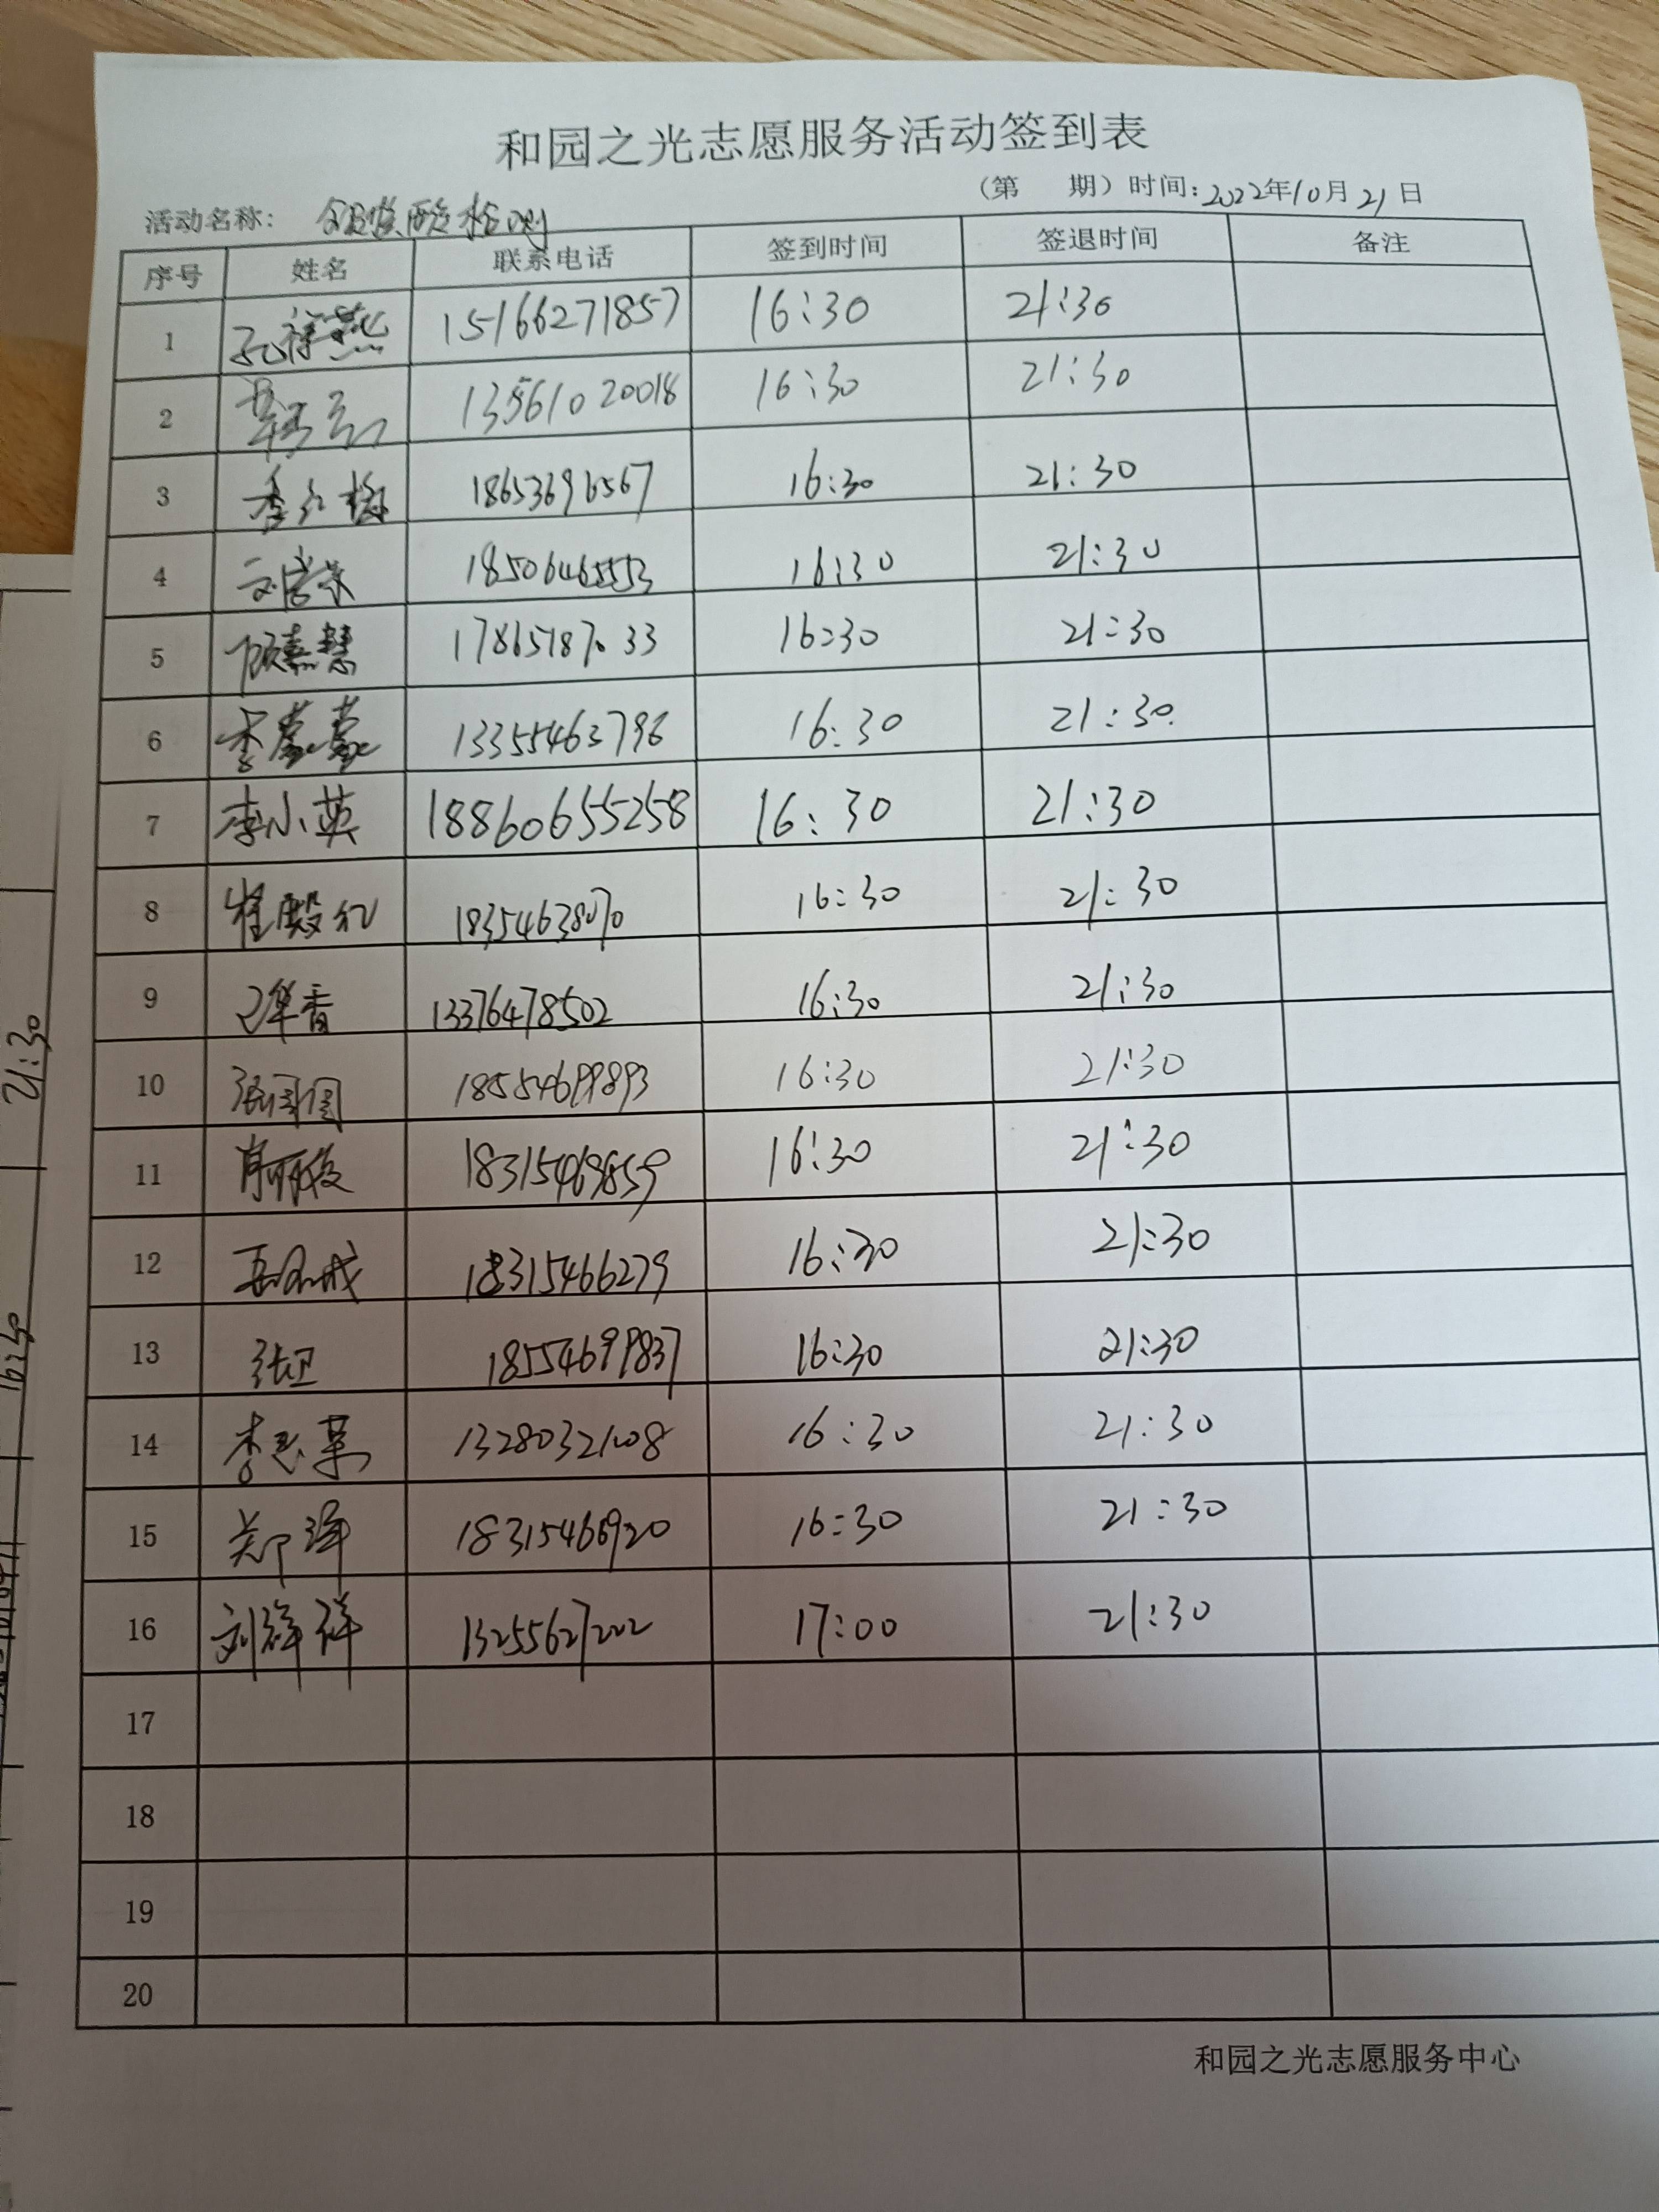 和园之光志愿服务活动签到表
（第 期）时间：2022年10月21日
活动名称： 全员核酸检测
序号 姓名 联系电话 签到时间 签退时间 备注
1 15166271857 16:30 21:30
2 13561020018 16:30 21:30
3 李红梅 18653696567 16:30 21:30
4 18506465553 16:30 21:30
5 顾嘉慧 16:30 21:30
6 李蒙蒙 13355463796 16:30 21:30
7 李小英 18860655258 16:30 21:30
8 18354638070 16:30 21:30
9 13376478502 16:30 21:30
10 18554699893 16:30 21:30
11 肖丽俊 18315469859 16:30 21:30
12 18315466279 16:30 21:30
13 张卫 18554699837 16:30 21:30
14 16:30 21:30
15 郑洋 18315466920 16:30 21:30
16 刘祥祥 13255627222 17:00 21:30
17
18
19
20
和园之光志愿服务中心
21:30